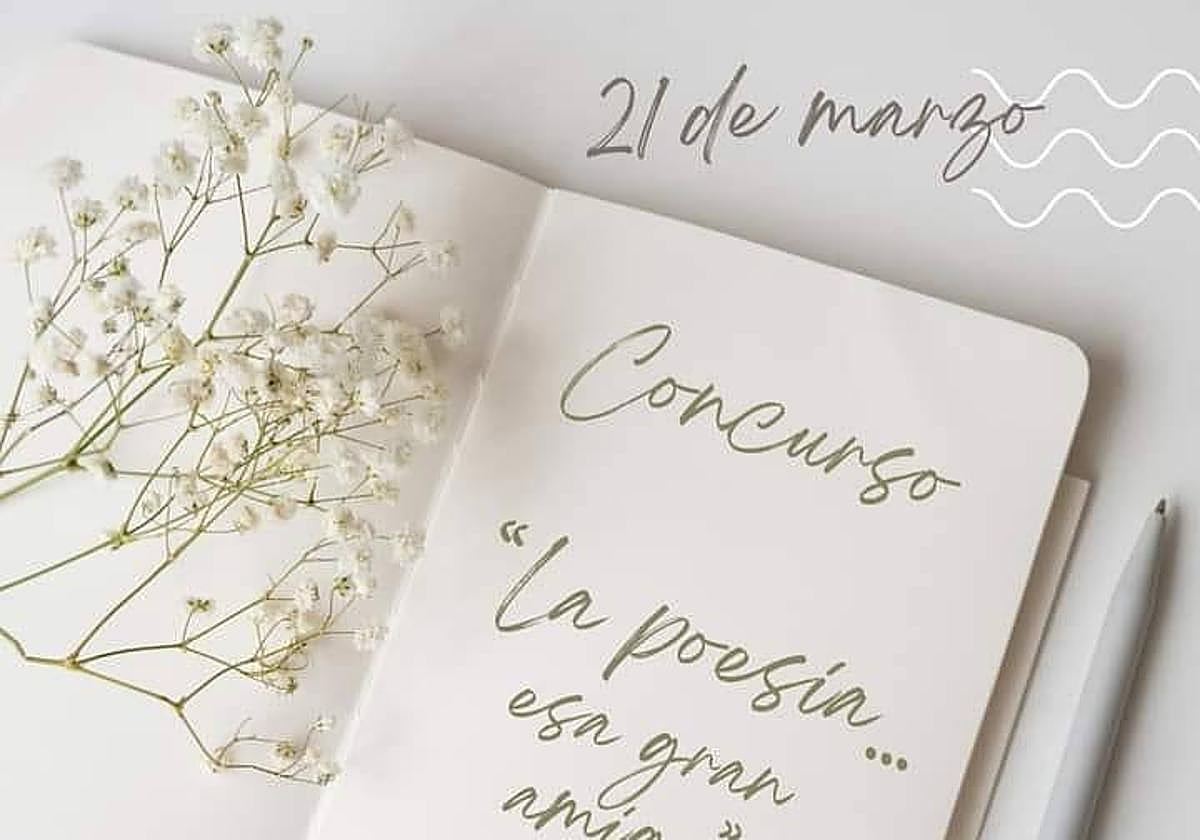 21 de marzo
Concurso
“La poesía...
esa gran
amiga”